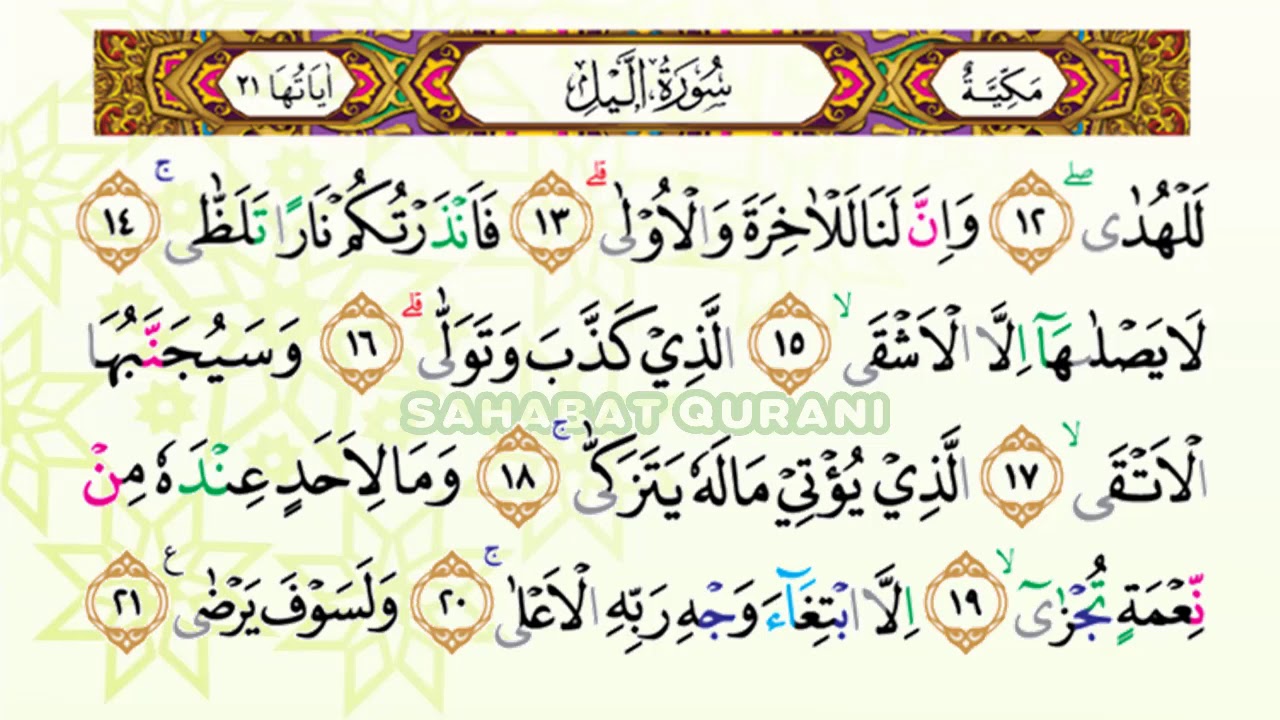 مَكِّيَّةٌ سُوْرَةُ الَّيْلِ اٰيَاتُهَا ٢١
لَلْهُدٰى ۖ ١٢ وَاِنَّ لَنَا لَلْاٰخِرَةَ وَالْاُوْلٰى ۗ ١٣ فَاَنْذَرْتُكُمْ نَارًا تَلَظّٰى ۚ ١٤
لَا يَصْلٰىهَآ اِلَّا الْاَشْقَى ۙ ١٥ الَّذِيْ كَذَّبَ وَتَوَلّٰى ۗ ١٦ وَسَيُجَنَّبُهَا
SAHABAT QURANI
الْاَتْقَى ۙ ١٧ الَّذِيْ يُؤْتِيْ مَالَهٗ يَتَزَكّٰى ۚ ١٨ وَمَا لِاَحَدٍ عِنْدَهٗ مِنْ
نِّعْمَةٍ تُجْزٰىٓ ۙ ١٩ اِلَّا ابْتِغَاۤءَ وَجْهِ رَبِّهِ الْاَعْلٰى ۚ ٢٠ وَلَسَوْفَ يَرْضٰى ع ٢١